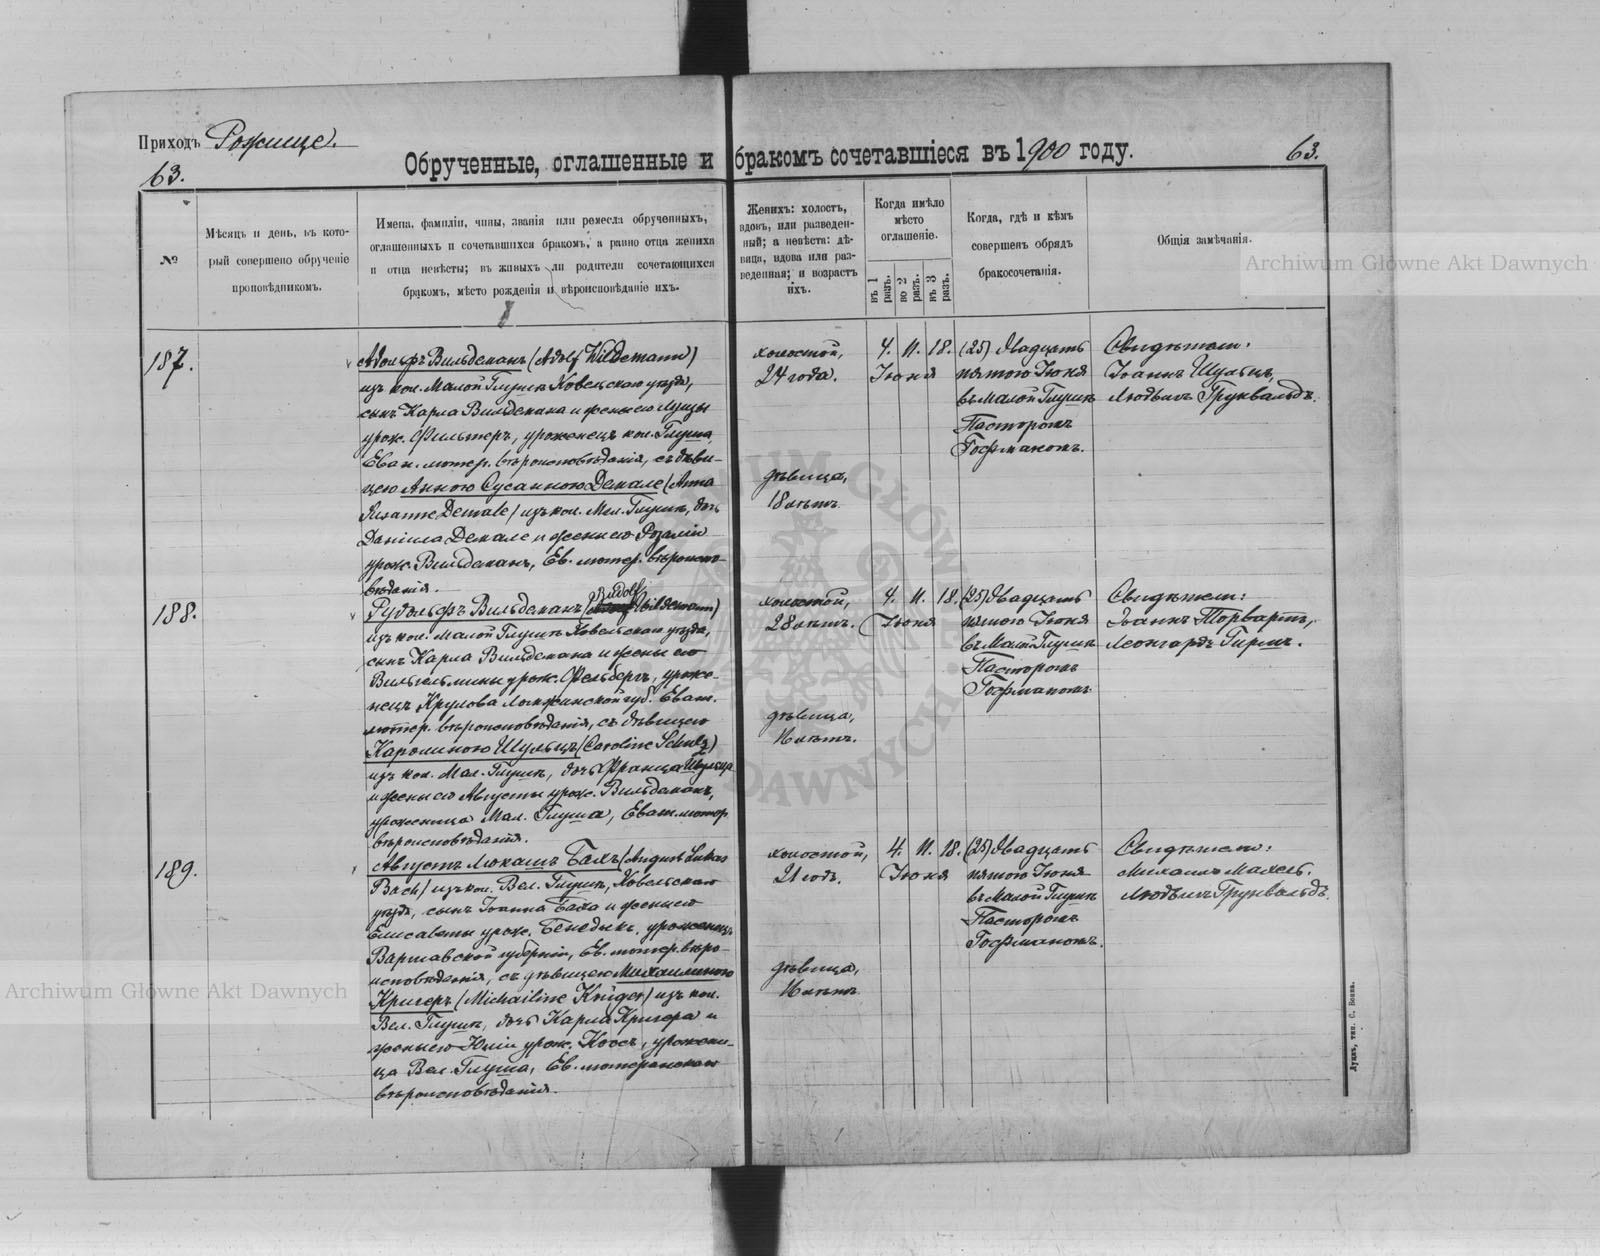 Приходъ Рожище.
63.
Обрученные, оглашенные и бракомъ сочетавшіеся въ 1900 году.
63.
№
Мѣсяцъ и день, въ кото-
рый совершено обрученіе
проповѣдникомъ.
Имена, фамиліи, чины, званія или ремесла обрученныхъ,
оглашенныхъ и сочетавшихся бракомъ, а равно отца жениха
и отца невѣсты; въ живыхъ ли родители сочетающихся
бракомъ, мѣсто рожденія и вѣроисповѣданіе ихъ.
Женихъ: холостъ,
вдовъ, или разведен-
ный; а невѣста: дѣ-
вица, вдова или раз-
веденная; и возрастъ
ихъ.
Когда имѣло
мѣсто
оглашеніе.
въ 1 разъ.
во 2 разъ.
въ 3 разъ.
Когда, гдѣ и кѣмъ
совершенъ обрядъ
бракосочетанія.
Общія замѣчанія.
187.
Адольфъ Вильдеманъ (Adolf Wildemann)
изъ кол. Малой Глушь Ковельскаго уѣзда,
сынъ Карла Вильдемана и жены его Луизы
урож. Фильтеръ, уроженецъ кол. Глуша,
Еван. лютер. вѣроисповѣданія, съ дѣви-
цею Анною Сусанною Демале (Anna
Susanne Demale) изъ кол. Мал. Глушь, дочь
Даніила Демале и жены его Розаліи
урож. Вильдеманъ, Ев. лютер. вѣроиспо-
вѣданія.
холостой,
24 года.
дѣвица,
18 лѣтъ.
4. 11. 18.
Іюня
(25) Двадцать
пятого Іюня
въ Малой Глушь
Пасторомъ
Гофманомъ.
Свидѣтели:
Іоаннъ Шульцъ,
Людвигъ Грунвальдъ.
188.
Рудольфъ Вильдеманъ (Rudolf Wildemann)
изъ кол. Малой Глушь Ковельскаго уѣзда,
сынъ Карла Вильдемана и жены его
Вильгельмины урож. Фельбергъ, уроже-
нецъ Крулова Ломжинской губ. Еван.
лютер. вѣроисповѣданія, съ дѣвицею
Каролиною Шульцъ (Caroline Schulz)
изъ кол. Мал. Глушь, дочь Франца Шульца
и жены его Августы урож. Вильдеманъ,
уроженица Мал. Глуша, Еван. лютер.
вѣроисповѣданія.
холостой,
28 лѣтъ.
дѣвица,
16 лѣтъ.
4. 11. 18.
Іюня
(25) Двадцать
пятого Іюня
въ Малой Глушь
Пасторомъ
Гофманомъ.
Свидѣтели:
Іоаннъ Торвартъ,
Леонгардъ Гирль.
189.
Августъ Люкашъ Бахъ (August Lukas
Bach) изъ кол. Вел. Глушь, Ковельскаго
уѣзда, сынъ Іоанна Баха и жены его
Елисаветы урож. Бенедыкъ, уроженецъ
Варшавской губерніи, Ев. лютер. вѣро-
исповѣданія, съ дѣвицею Михалиною
Кригеръ (Michailine Krüger) изъ кол.
Вел. Глушь, дочь Карла Кригера и
жены его Юліи урож. Коосъ, урожени-
ца Вел. Глуша, Ев. лютеранскаго
вѣроисповѣданія.
холостой,
21 годъ.
дѣвица,
16 лѣтъ.
4. 11. 18.
Іюня
(25) Двадцать
пятого Іюня
въ Малой Глушь
Пасторомъ
Гофманомъ.
Свидѣтели:
Михаилъ Махель.
Людвигъ Грунвальдъ.
Луцкъ, тип. С. Бокка.
Archiwum Główne Akt Dawnych
Archiwum Główne Akt Dawnych